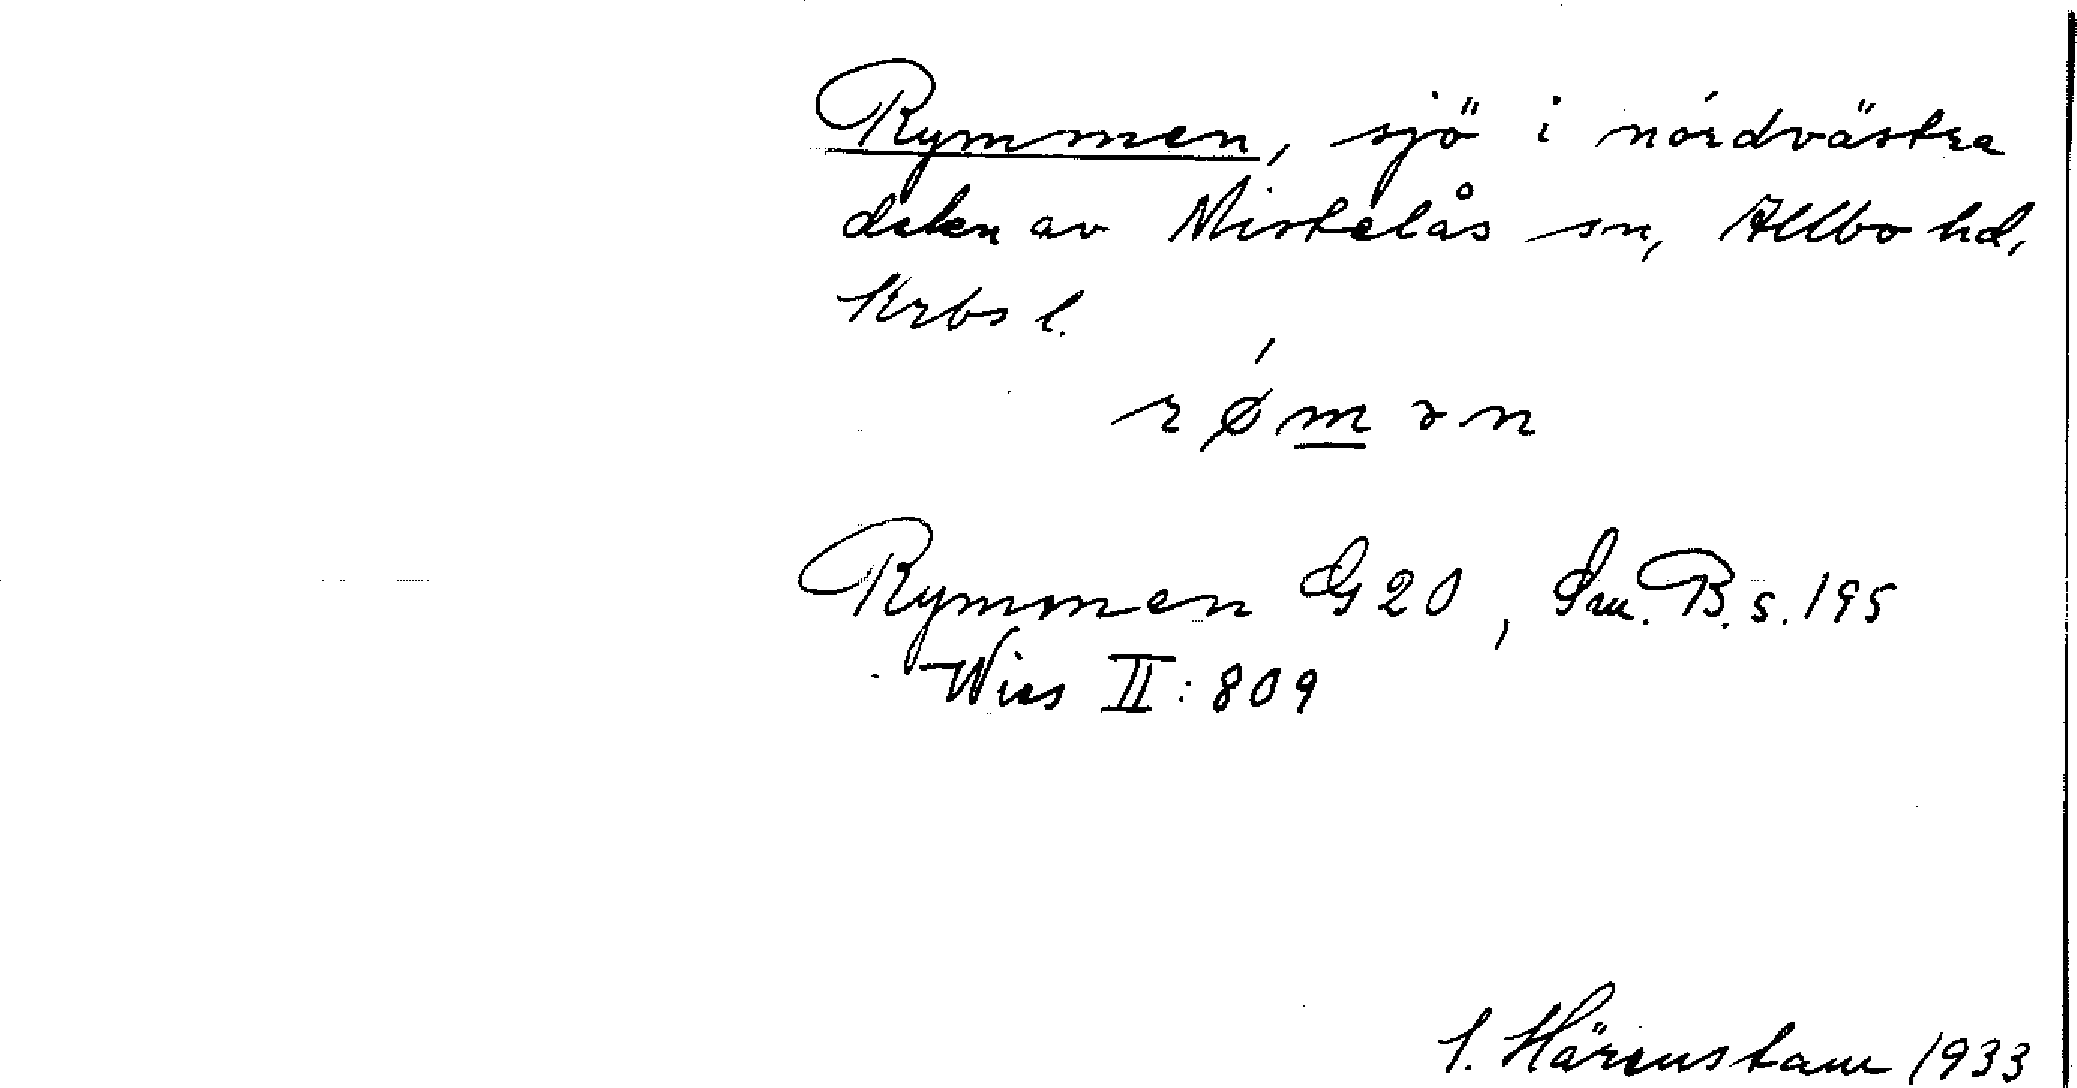 Rymmen, sjö i nordvästra
delen av Mistelås sn, Allbo hd,
Krbs l.
røman
Rymmen G20, Sm. B. s. 195
Wies II: 809
S. Härenstam 1933